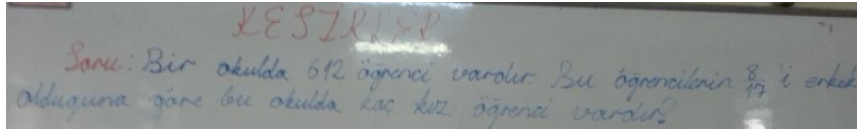 KESİRLER
Soru: Bir okulda 612 öğrenci vardır. Bu öğrencilerin 8/17 'i erkek
olduguna göre bu okulda kaç kız öğrenci vardır?